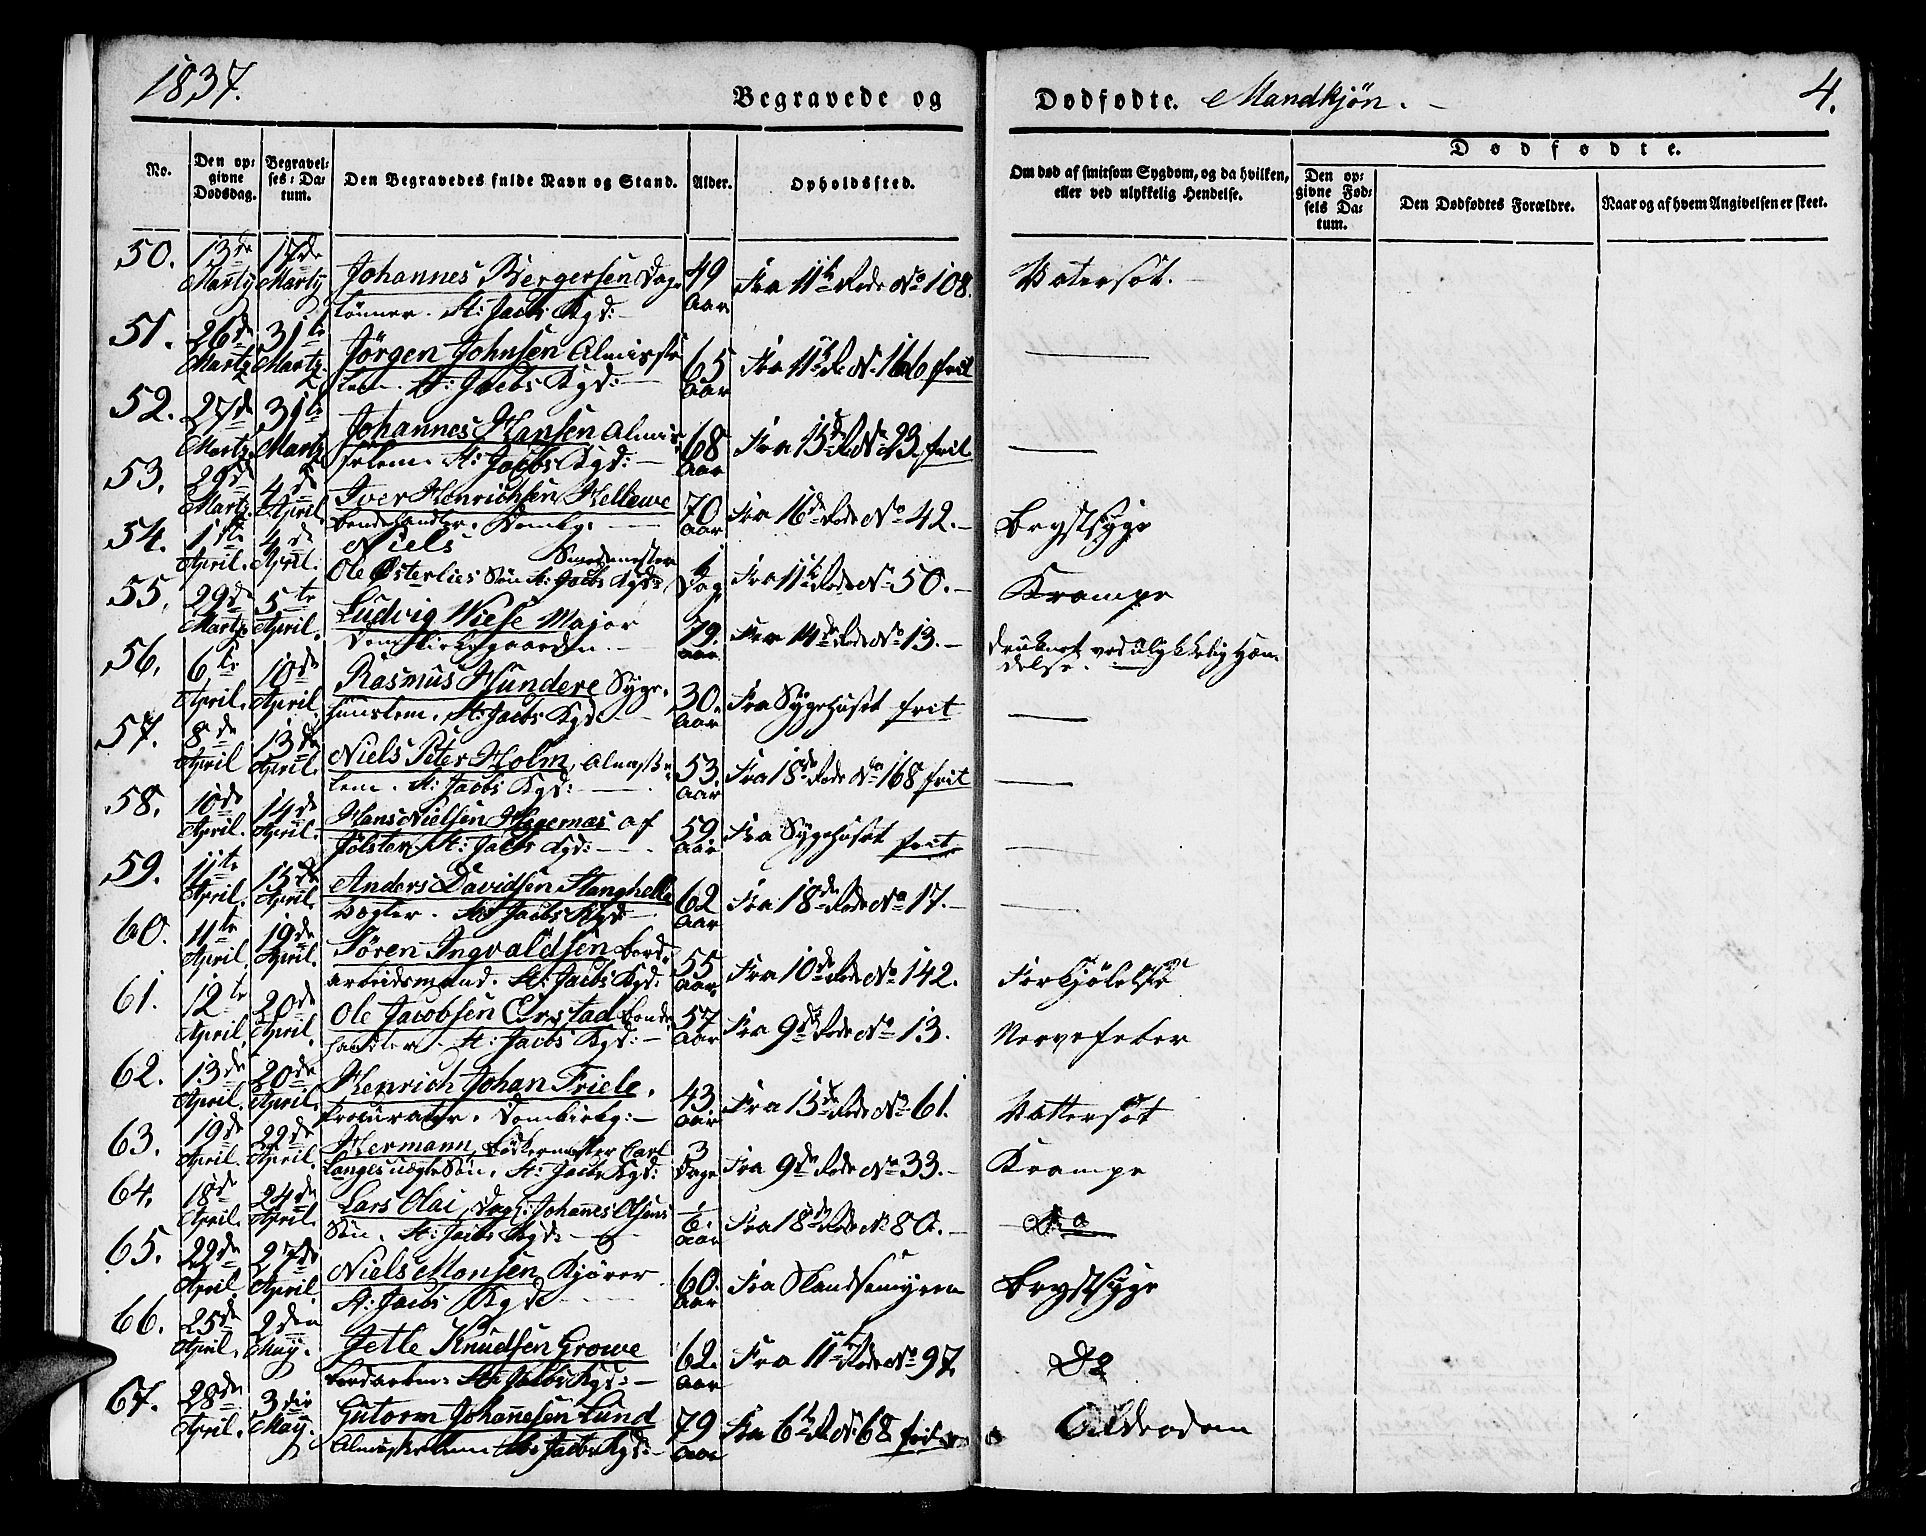 1837.
Begravede og Dødfødte. Mandkjøn. 4.
No. Den opgivne Dødsdag. Begravelses-Datum. Den Begravedes fulde Navn og Stand. Alder. Opholdssted. Om død af smitsom Sygdom, og da hvilken, eller ved ulykkelig Hendelse. Dødfødte.
Den opgivne Fødsels Datum. Den Dødfødtes Forældre. Naar og af hvem Angivelsen er skeet.
50. 13de Martz 17de Martz Johannes Bergersen Dag-
lønner. St: Jacbs Kgd: 49 Aar Fra 11te Rode No 108. Vatersot.
51. 26de Martz 31te Martz. Jörgen Johnsen Almisse
lem. St: Jacbs Kgd: 65 Aar Fra 11te Rde No 166 frit
52. 27de Martz 31te Martz Johannes Hansen Almis-
selem. St: Jacbs Kgd: 68 Aar Fra 15de Rde No 23 frit
53. 29de Martz 4de April Iver Henrichsen Hellewe
Bondehandler. Domkg: 70 Aar Fra 16de Rode No 42. Brystsyge
54. 1ste April. 4de April. Niels
Ole Østerlies Søn St: Jacbs Kgd: Smedemester 1 Dag Fra 11te Rode No 50. Krampe
55. 29de Martz 5te April. Ludvig Wiese Major
Domkirkegaarden. 79. aar Fra 14de Rode No 13. Druknet ved ulykkelig Hæn-
delse.
56. 6te April. 10de April Rasmus Hundere Syge-
huuslem. St: Jacbs Kgd: 30. Aar Fra Sygehuset frit
57. 8de April 13de April. Niels Peter Holm, Almisse-
lem. St: Jacbs Kgd: 53. Aar Fra 18de Rode No 168 frit
58. 10de April. 14de April. Hans Nielsen af
Jølster St: Jacbs Kgd: 59 Aar Fra Sygehuset frit
59. 11te April. 15de April. Anders Davidsen Stanghelle
Vægter. St: Jacbs Kgd 62 Aar Fra 18de Rode No 17.
60. 11te April. 19de April. Sören Ingvaldsen Bord-
arbeidsmand. St: Jacbs Kgd: 55 Aar Fra 10de Rode No 142. Forkjølelse
61. 12te April. 20de April. Ole Jacobsen Bonde
handler. St: Jacbs Kgd: 57 Aar Fra 9de Rode No 13. Nervefeber
62. 13de April. 20de April. Henrich Johan Friele.
Procurator. Domkirkg: 43 Aar Fra 15de Rode No 61. Vattersot
63. 19de April. 22de April. Hermann, Bödkermester Carl
Langes uægte Søn. St: Jacbs Kgd: 3 Dage Fra 9de Rode No 33. Krampe
64. 18de April. 24de April. Lars Olai, Dagl: Johannes Olsens
Søn. St: Jacbs Kgd: Fra 18de Rode No 80. Do
65. 22de April 27de April Niels Monsen Kjører
St: Jacbs Kgd 60. Aar Fra Brystsyge
66. 25de April. 2den May. Jetle Knudsen Growe
St: Jacbs Kgd: 62. Aar Fra 11te Rode No 97. Do
67. 28de April. 3die May. Gutorm Johannesen Lund
Almisselem St: Jacbs Kgd: 79 Aar Fra 6te Rde No 68 frit Alderdom